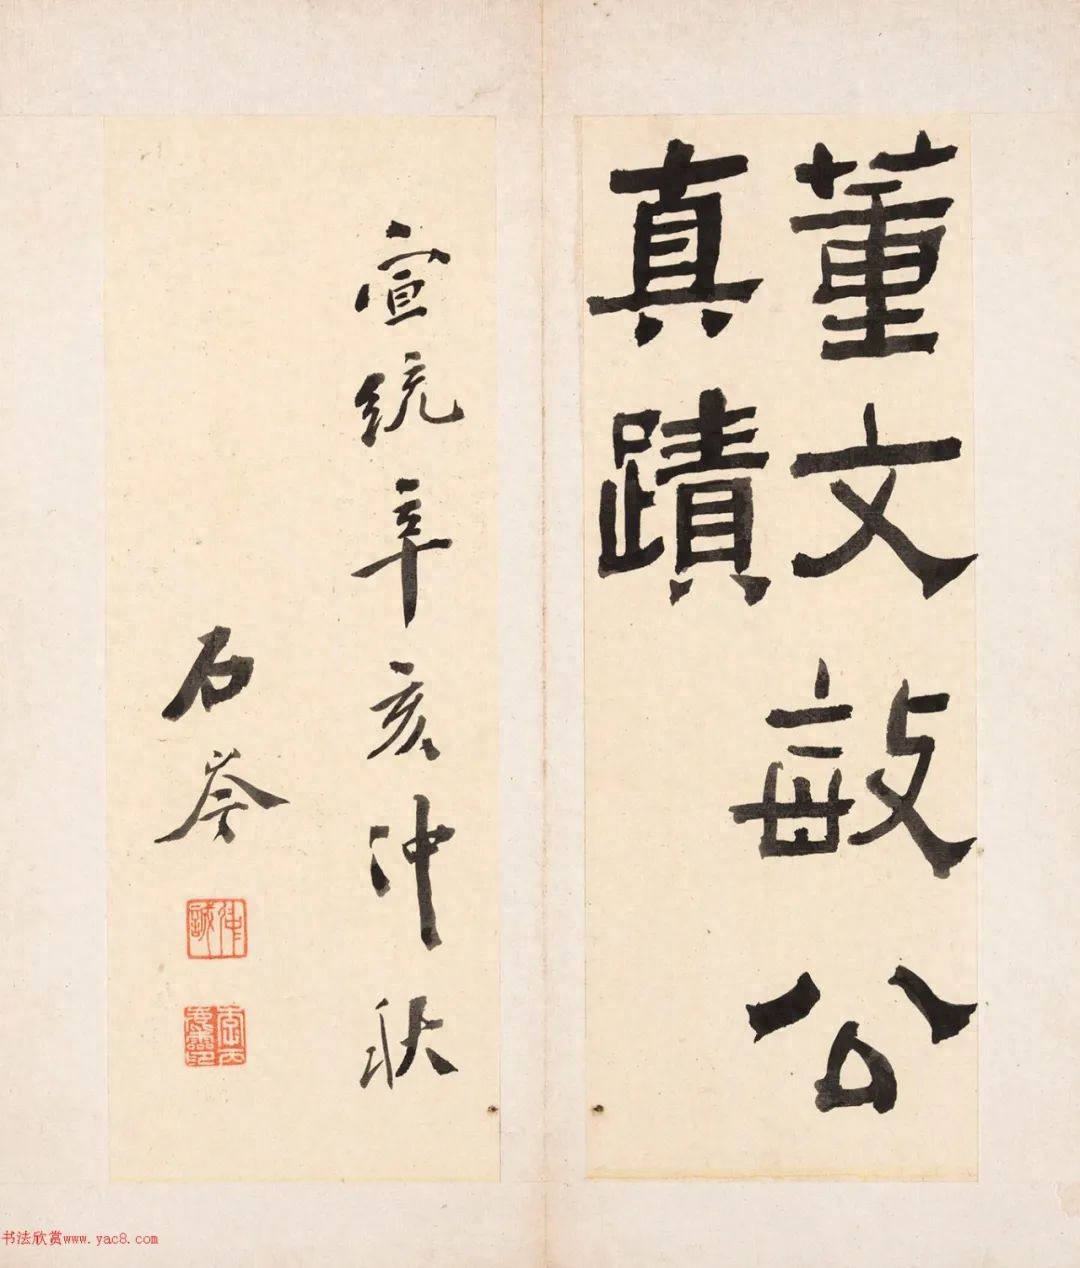 董文敏公
真蹟
宣統辛亥仲秋
石荃
書法欣赏www.yac8.com